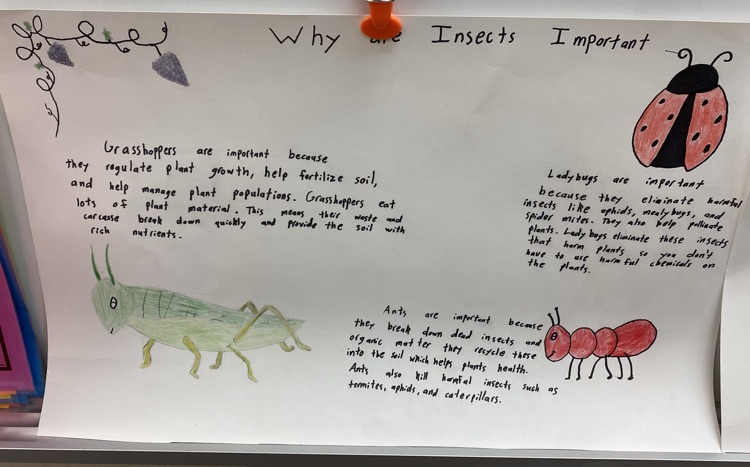 Why are Insects Important
Grasshoppers are important because
they regulate plant growth, help fertilize soil,
and help manage plant populations. Grasshoppers eat
lots of plant material. This means their waste and
carcasse break down quickly and provide the soil with
rich nutrients.
Ladybugs are important
because they eliminate harmful
insects like aphids, mealybugs, and
spider mites. They also help pollinate
plants. Lady bugs eliminate these insects
that harm plants so you don't
have to use harmful chemicals on
the plants.
Ants are important because
they break down dead insects and
organic matter they recycle these
into the soil which helps plants health.
Ants also kill harmful insects such as
termites, aphids, and caterpillars.